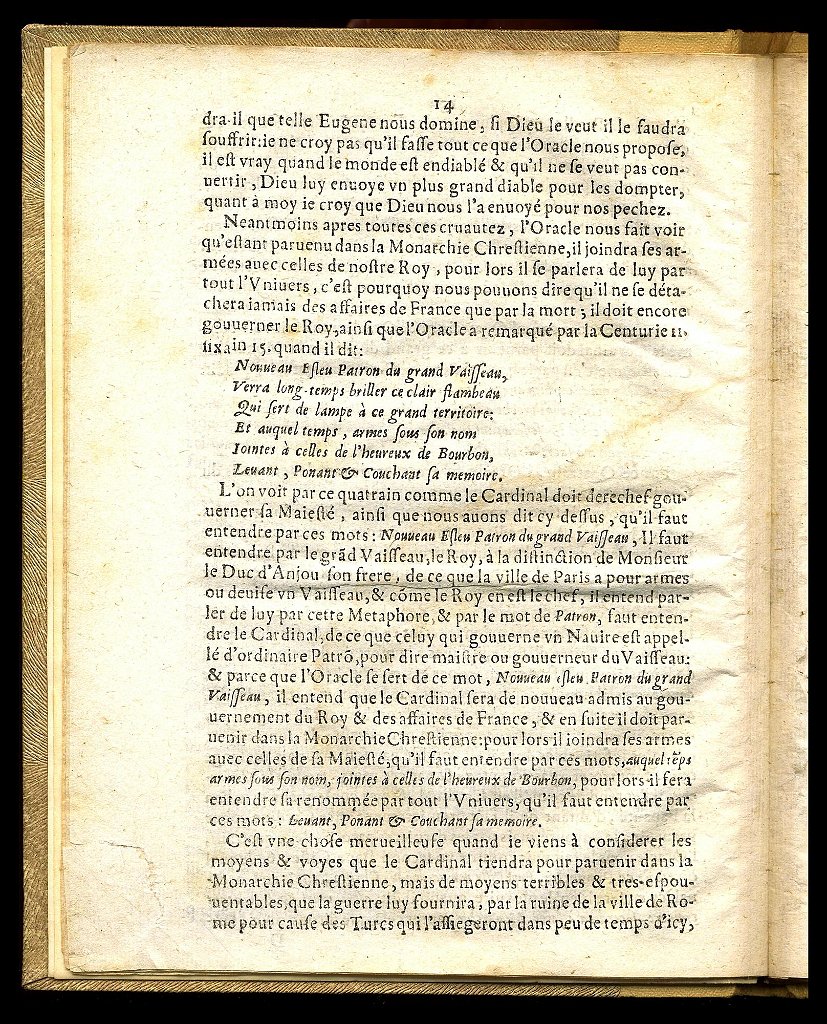 14
dra-il que telle Eugene nous domine, si Dieu le veut il le faudra
souffrir: ie ne croy pas qu'il fasse tout ce que l'Oracle nous propose,
il est vray quand le monde est endiablé & qu'il ne se veut pas con-
uertir, Dieu luy enuoye vn plus grand diable pour les dompter,
quant à moy ie croy que Dieu nous l'a enuoyé pour nos pechez.
Neantmoins apres toutes ces cruautez, l'Oracle nous fait voir
qu'estant paruenu dans la Monarchie Chrestienne, il joindra ses ar-
mées auec celles de nostre Roy, pour lors il se parlera de luy par
tout l'Vniuers, c'est pourquoy nous pouuons dire qu'il ne se déta-
chera iamais des affaires de France que par la mort; il doit encore
gouuerner le Roy, ainsi que l'Oracle a remarqué par la Centurie 11.
sixain 15. quand il dit:
Nouueau Esleu Patron du grand Vaisseau,
Verra long-temps briller ce clair flambeau
Qui sert de lampe à ce grand territoire:
Et auquel temps, armes sous son nom
Iointes à celles de l'heureux de Bourbon,
Leuant, Ponant & Couchant sa memoire.
L'on voit par ce quatrain comme le Cardinal doit derechef gou-
uerner sa Maiesté, ainsi que nous auons dit cy dessus, qu'il faut
entendre par ces mots: Nouueau Esleu Patron du grand Vaisseau, Il faut
entendre par le grãd Vaisseau, le Roy, à la distinction de Monsieur
le Duc d'Anjou son frere, de ce que la ville de Paris a pour armes
ou deuise vn Vaisseau, & cõme le Roy en est le chef, il entend par-
ler de luy par cette Metaphore, & par le mot de Patron, faut enten-
dre le Cardinal, de ce que celuy qui gouuerne vn Nauire est appel-
lé d'ordinaire Patrõ, pour dire maistre ou gouuerneur du Vaisseau:
& parce que l'Oracle se sert de ce mot, Nouueau esleu Patron du grand
Vaisseau, il entend que le Cardinal sera de nouueau admis au gou-
uernement du Roy & des affaires de France, & en suite il doit par-
uenir dans la Monarchie Chrestienne: pour lors il ioindra ses armes
auec celles de sa Maiesté, qu'il faut entendre par ces mots, auquel tẽps
armes sous son nom, jointes à celles de l'heureux de Bourbon, pour lors il fera
entendre sa renommée par tout l'Vniuers, qu'il faut entendre par
ces mots: Leuant, Ponant & Couchant sa memoire.
C'est vne chose merueilleuse quand ie viens à considerer les
moyens & voyes que le Cardinal tiendra pour paruenir dans la
Monarchie Chrestienne, mais de moyens terribles & tres-espou-
uentables, que la guerre luy fournira, par la ruine de la ville de Ro-
me pour cause des Turcs qui l'assiegeront dans peu de temps d'icy,